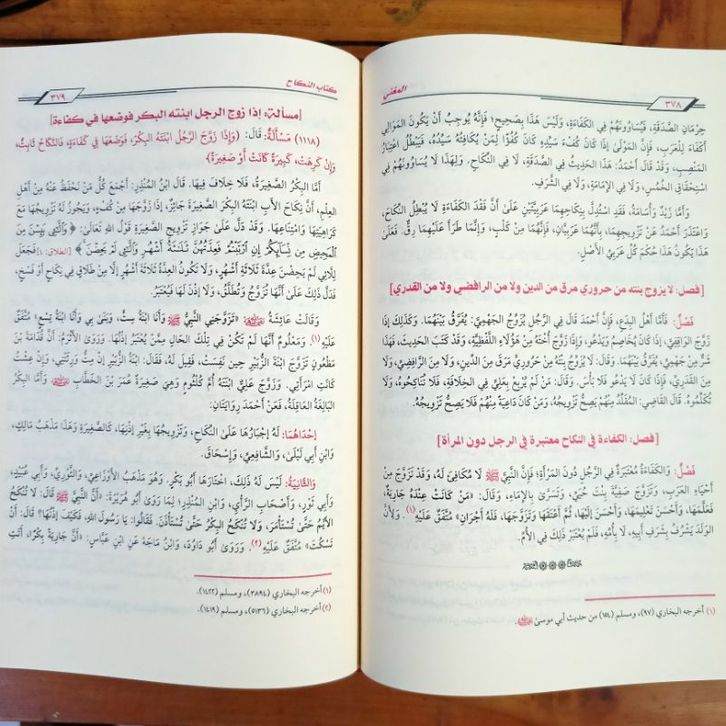 ٣٧٨
المغني
حِرْمَانِ الصَّدَقَةِ، فَيُسَاوُونَهُمْ فِي الْكَفَاءَةِ، وَلَيْسَ هَذَا بِصَحِيحٍ؛ فَإِنَّهُ يُوجِبُ أَنْ يَكُونَ الْمَوَالِي
أَكْفَاءً لِلْعَرَبِ، فَإِنَّ الْمَوْلَى إِذَا كَانَ كُفْءَ سَيِّدِهِ كَانَ كُفُؤًا لِمَنْ يُكَافِئُهُ سَيِّدُهُ، فَيَبْطُلُ اعْتِبَارُ
الْمَنْصِبِ، وَقَدْ قَالَ أَحْمَدُ: هَذَا الْحَدِيثُ فِي الصَّدَقَةِ، لَا فِي النِّكَاحِ. وَلِهَذَا لَا يُسَاوُونَهُمْ فِي
اسْتِحْقَاقِ الْخُمُسِ، وَلَا فِي الْإِمَامَةِ، وَلَا فِي الشَّرَفِ.
وَأَمَّا زَيْدٌ وَأُسَامَةُ، فَقَدِ اسْتُدِلَّ بِنِكَاحِهِمَا عَرَبِيَّتَيْنِ عَلَى أَنَّ فَقْدَ الْكَفَاءَةِ لَا يُبْطِلُ النِّكَاحَ،
وَاعْتَذَرَ أَحْمَدُ عَنْ تَزْوِيجِهِمَا، بِأَنَّهُمَا عَرَبِيَّانِ، فَإِنَّهُمَا مِنْ كَلْبٍ، وَإِنَّمَا طَرَأَ عَلَيْهِمَا رِقٌّ، فَعَلَى
هَذَا يَكُونُ هَذَا حُكْمَ كُلِّ عَرَبِيِّ الْأَصْلِ.
[فصل: لا يزوج بنته من حروري مرق من الدين ولا من الرافضي ولا من القدري]
فَصْلٌ: فَأَمَّا أَهْلُ الْبِدَعِ، فَإِنَّ أَحْمَدَ قَالَ فِي الرَّجُلِ يُزَوِّجُ الْجَهْمِيَّ: يُفَرَّقُ بَيْنَهُمَا. وَكَذَلِكَ إِذَا
زَوَّجَ الْوَاقِفِيَّ، إِذَا كَانَ يُخَاصِمُ وَيَدْعُو، وَإِذَا زَوَّجَ أُخْتَهُ مِنْ هَؤُلَاءِ اللَّفْظِيَّةِ، وَقَدْ كَتَبَ الْحَدِيثَ، فَهَذَا
شَرٌّ مِنْ جَهْمِيٍّ، يُفَرَّقُ بَيْنَهُمَا. وَقَالَ: لَا يُزَوِّجُ بِنْتَهُ مِنْ حَرُورِيٍّ مَرَقَ مِنَ الدِّينِ، وَلَا مِنَ الرَّافِضِيِّ، وَلَا
مِنَ الْقَدَرِيِّ، فَإِذَا كَانَ لَا يَدْعُو فَلَا بَأْسَ. وَقَالَ: مَنْ لَمْ يُرَبِّعْ بِعَلِيٍّ فِي الْخِلَافَةِ، فَلَا تُنَاكِحُوهُ، وَلَا
تُكَلِّمُوهُ. قَالَ الْقَاضِي: الْمُقَلِّدُ مِنْهُمْ يَصِحُّ تَزْوِيجُهُ، وَمَنْ كَانَ دَاعِيَةً مِنْهُمْ فَلَا يَصِحُّ تَزْوِيجُهُ.
[فصل: الكفاءة في النكاح معتبرة في الرجل دون المرأة]
فَصْلٌ: وَالْكَفَاءَةُ مُعْتَبَرَةٌ فِي الرَّجُلِ دُونَ الْمَرْأَةِ؛ فَإِنَّ النَّبِيَّ ﷺ لَا مُكَافِئَ لَهُ، وَقَدْ تَزَوَّجَ مِنْ
أَحْيَاءِ الْعَرَبِ، وَتَزَوَّجَ صَفِيَّةَ بِنْتَ حُيَيٍّ، وَتَسَرَّى بِالْإِمَاءِ، وَقَالَ: «مَنْ كَانَتْ عِنْدَهُ جَارِيَةٌ،
فَعَلَّمَهَا، وَأَحْسَنَ تَعْلِيمَهَا، وَأَحْسَنَ إِلَيْهَا، ثُمَّ أَعْتَقَهَا وَتَزَوَّجَهَا، فَلَهُ أَجْرَانِ» مُتَّفَقٌ عَلَيْهِ(١). وَلِأَنَّ
الْوَلَدَ يَشْرُفُ بِشَرَفِ أَبِيهِ، لَا بِأُمِّهِ، فَلَمْ يُعْتَبَرْ ذَلِكَ فِي الْأُمِّ.
(١) أخرجه البخاري (٩٧)، ومسلم (١٥٤) من حديث أبي موسى
كتاب النكاح
٣٧٩
[مسألة: إذا زوج الرجل ابنته البكر فوضعها في كفاءة]
(١١١٨) مَسْأَلَةٌ: قَالَ: (وَإِذَا زَوَّجَ الرَّجُلُ ابْنَتَهُ الْبِكْرَ، فَوَضَعَهَا فِي كَفَاءَةٍ، فَالنِّكَاحُ ثَابِتٌ،
وَإِنْ كَرِهَتْ، كَبِيرَةً كَانَتْ أَوْ صَغِيرَةً)
أَمَّا الْبِكْرُ الصَّغِيرَةُ، فَلَا خِلَافَ فِيهَا. قَالَ ابْنُ الْمُنْذِرِ: أَجْمَعَ كُلُّ مَنْ نَحْفَظُ عَنْهُ مِنْ أَهْلِ
الْعِلْمِ، أَنَّ نِكَاحَ الْأَبِ ابْنَتَهُ الْبِكْرَ الصَّغِيرَةَ جَائِزٌ، إِذَا زَوَّجَهَا مِنْ كُفْءٍ، وَيَجُوزُ لَهُ تَزْوِيجُهَا مَعَ
كَرَاهِيَتِهَا وَامْتِنَاعِهَا. وَقَدْ دَلَّ عَلَى جَوَازِ تَزْوِيجِ الصَّغِيرَةِ قَوْلُ اللهِ تَعَالَى: ﴿وَالَّٰٓـِٔي يَئِسْنَ مِنَ
الْمَحِيضِ مِن نِّسَآئِكُمْ إِنِ ارْتَبْتُمْ فَعِدَّتُهُنَّ ثَلَٰثَةُ أَشْهُرٍ وَالَّٰٓـِٔي لَمْ يَحِضْنَ﴾ [الطلاق: ٤] فَجَعَلَ
لِلَّائِي لَمْ يَحِضْنَ عِدَّةَ ثَلَاثَةِ أَشْهُرٍ، وَلَا تَكُونُ الْعِدَّةُ ثَلَاثَةَ أَشْهُرٍ إِلَّا مِنْ طَلَاقٍ فِي نِكَاحٍ أَوْ فَسْخٍ،
فَدَلَّ ذَلِكَ عَلَى أَنَّهَا تُزَوَّجُ وَتُطَلَّقُ، وَلَا إِذْنَ لَهَا فَيُعْتَبَرُ.
وَقَالَتْ عَائِشَةُ: «تَزَوَّجَنِي النَّبِيُّ ﷺ وَأَنَا ابْنَةُ سِتٍّ، وَبَنَى بِي وَأَنَا ابْنَةُ تِسْعٍ» مُتَّفَقٌ
عَلَيْهِ(١). وَمَعْلُومٌ أَنَّهَا لَمْ تَكُنْ فِي تِلْكَ الْحَالِ مِمَّنْ يُعْتَبَرُ إِذْنُهَا. وَرَوَى الْأَثْرَمُ: أَنَّ قُدَامَةَ بْنَ
مَظْعُونٍ تَزَوَّجَ ابْنَةَ الزُّبَيْرِ حِينَ نَفِسَتْ، فَقِيلَ لَهُ، فَقَالَ: ابْنَةُ الزُّبَيْرِ إِنْ مِتُّ وَرِثَتْنِي، وَإِنْ عِشْتُ
كَانَتِ امْرَأَتِي. وَزَوَّجَ عَلِيٌّ ابْنَتَهُ أُمَّ كُلْثُومٍ وَهِيَ صَغِيرَةٌ عُمَرَ بْنَ الْخَطَّابِ وَأَمَّا الْبِكْرُ
الْبَالِغَةُ الْعَاقِلَةُ، فَعَنْ أَحْمَدَ رِوَايَتَانِ.
إِحْدَاهُمَا: لَهُ إِجْبَارُهَا عَلَى النِّكَاحِ، وَتَزْوِيجُهَا بِغَيْرِ إِذْنِهَا، كَالصَّغِيرَةِ وَهَذَا مَذْهَبُ مَالِكٍ،
وَابْنِ أَبِي لَيْلَى، وَالشَّافِعِيِّ، وَإِسْحَاقَ.
وَالثَّانِيَةُ: لَيْسَ لَهُ ذَلِكَ. اخْتَارَهَا أَبُو بَكْرٍ. وَهُوَ مَذْهَبُ الْأَوْزَاعِيِّ، وَالثَّوْرِيِّ، وَأَبِي عُبَيْدٍ،
وَأَبِي ثَوْرٍ، وَأَصْحَابِ الرَّأْيِ، وَابْنِ الْمُنْذِرِ؛ لِمَا رَوَى أَبُو هُرَيْرَةَ: «أَنَّ النَّبِيَّ ﷺ قَالَ: لَا تُنْكَحُ
الْأَيِّمُ حَتَّى تُسْتَأْمَرَ، وَلَا تُنْكَحُ الْبِكْرُ حَتَّى تُسْتَأْذَنَ. فَقَالُوا: يَا رَسُولَ اللهِ، فَكَيْفَ إِذْنُهَا؟ قَالَ: أَنْ
تَسْكُتَ» مُتَّفَقٌ عَلَيْهِ(٢). وَرَوَى أَبُو دَاوُدَ، وَابْنُ مَاجَهْ عَنِ ابْنِ عَبَّاسٍ: «أَنَّ جَارِيَةً بِكْرًا، أَتَتِ
(١) أخرجه البخاري (٣٨٩٤)، ومسلم (١٤٢٢).
(٢) أخرجه البخاري (٥١٣٦)، ومسلم (١٤١٩).